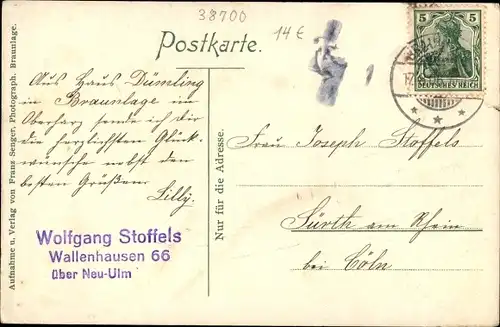 38700
14 €
Postkarte.
5 5
DEUTSCHES REICH
Aus Haus Dümling
in Braunlage im
Oberharz sende ich dir
die herzlichsten Glück-
wünsche nebst den
besten Grüßen
Lilly.
Frau Joseph Stoffels
Sürth am Rhein
bei Cöln
Wolfgang Stoffels
Wallenhausen 66
über Neu-Ulm
Aufnahme u. Verlag von Franz Senger, Photograph, Braunlage.
Nur für die Adresse.